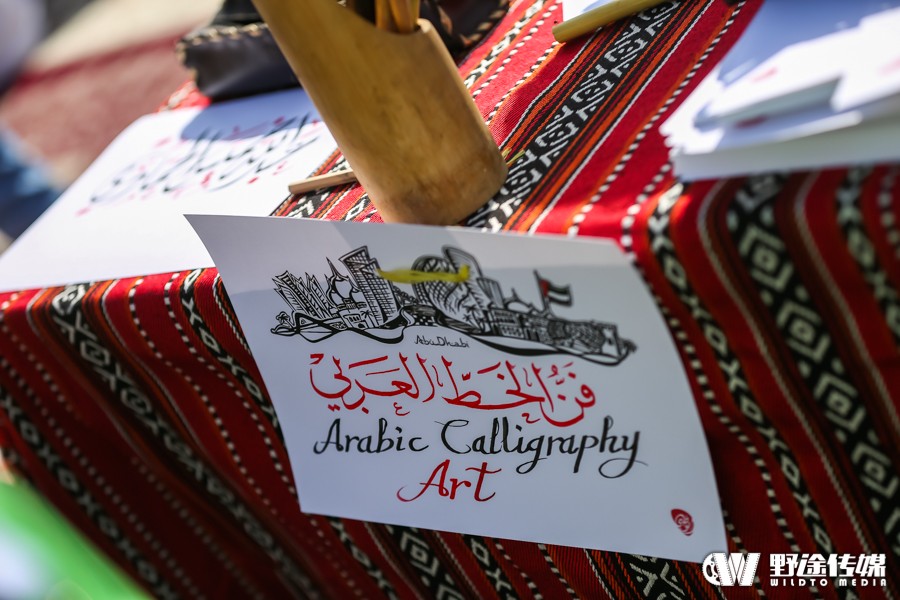 AbuDhabi
فَنُّ الخَطّ العَرَبي
Arabic Calligraphy
Art
野途传媒
WILDTO MEDIA